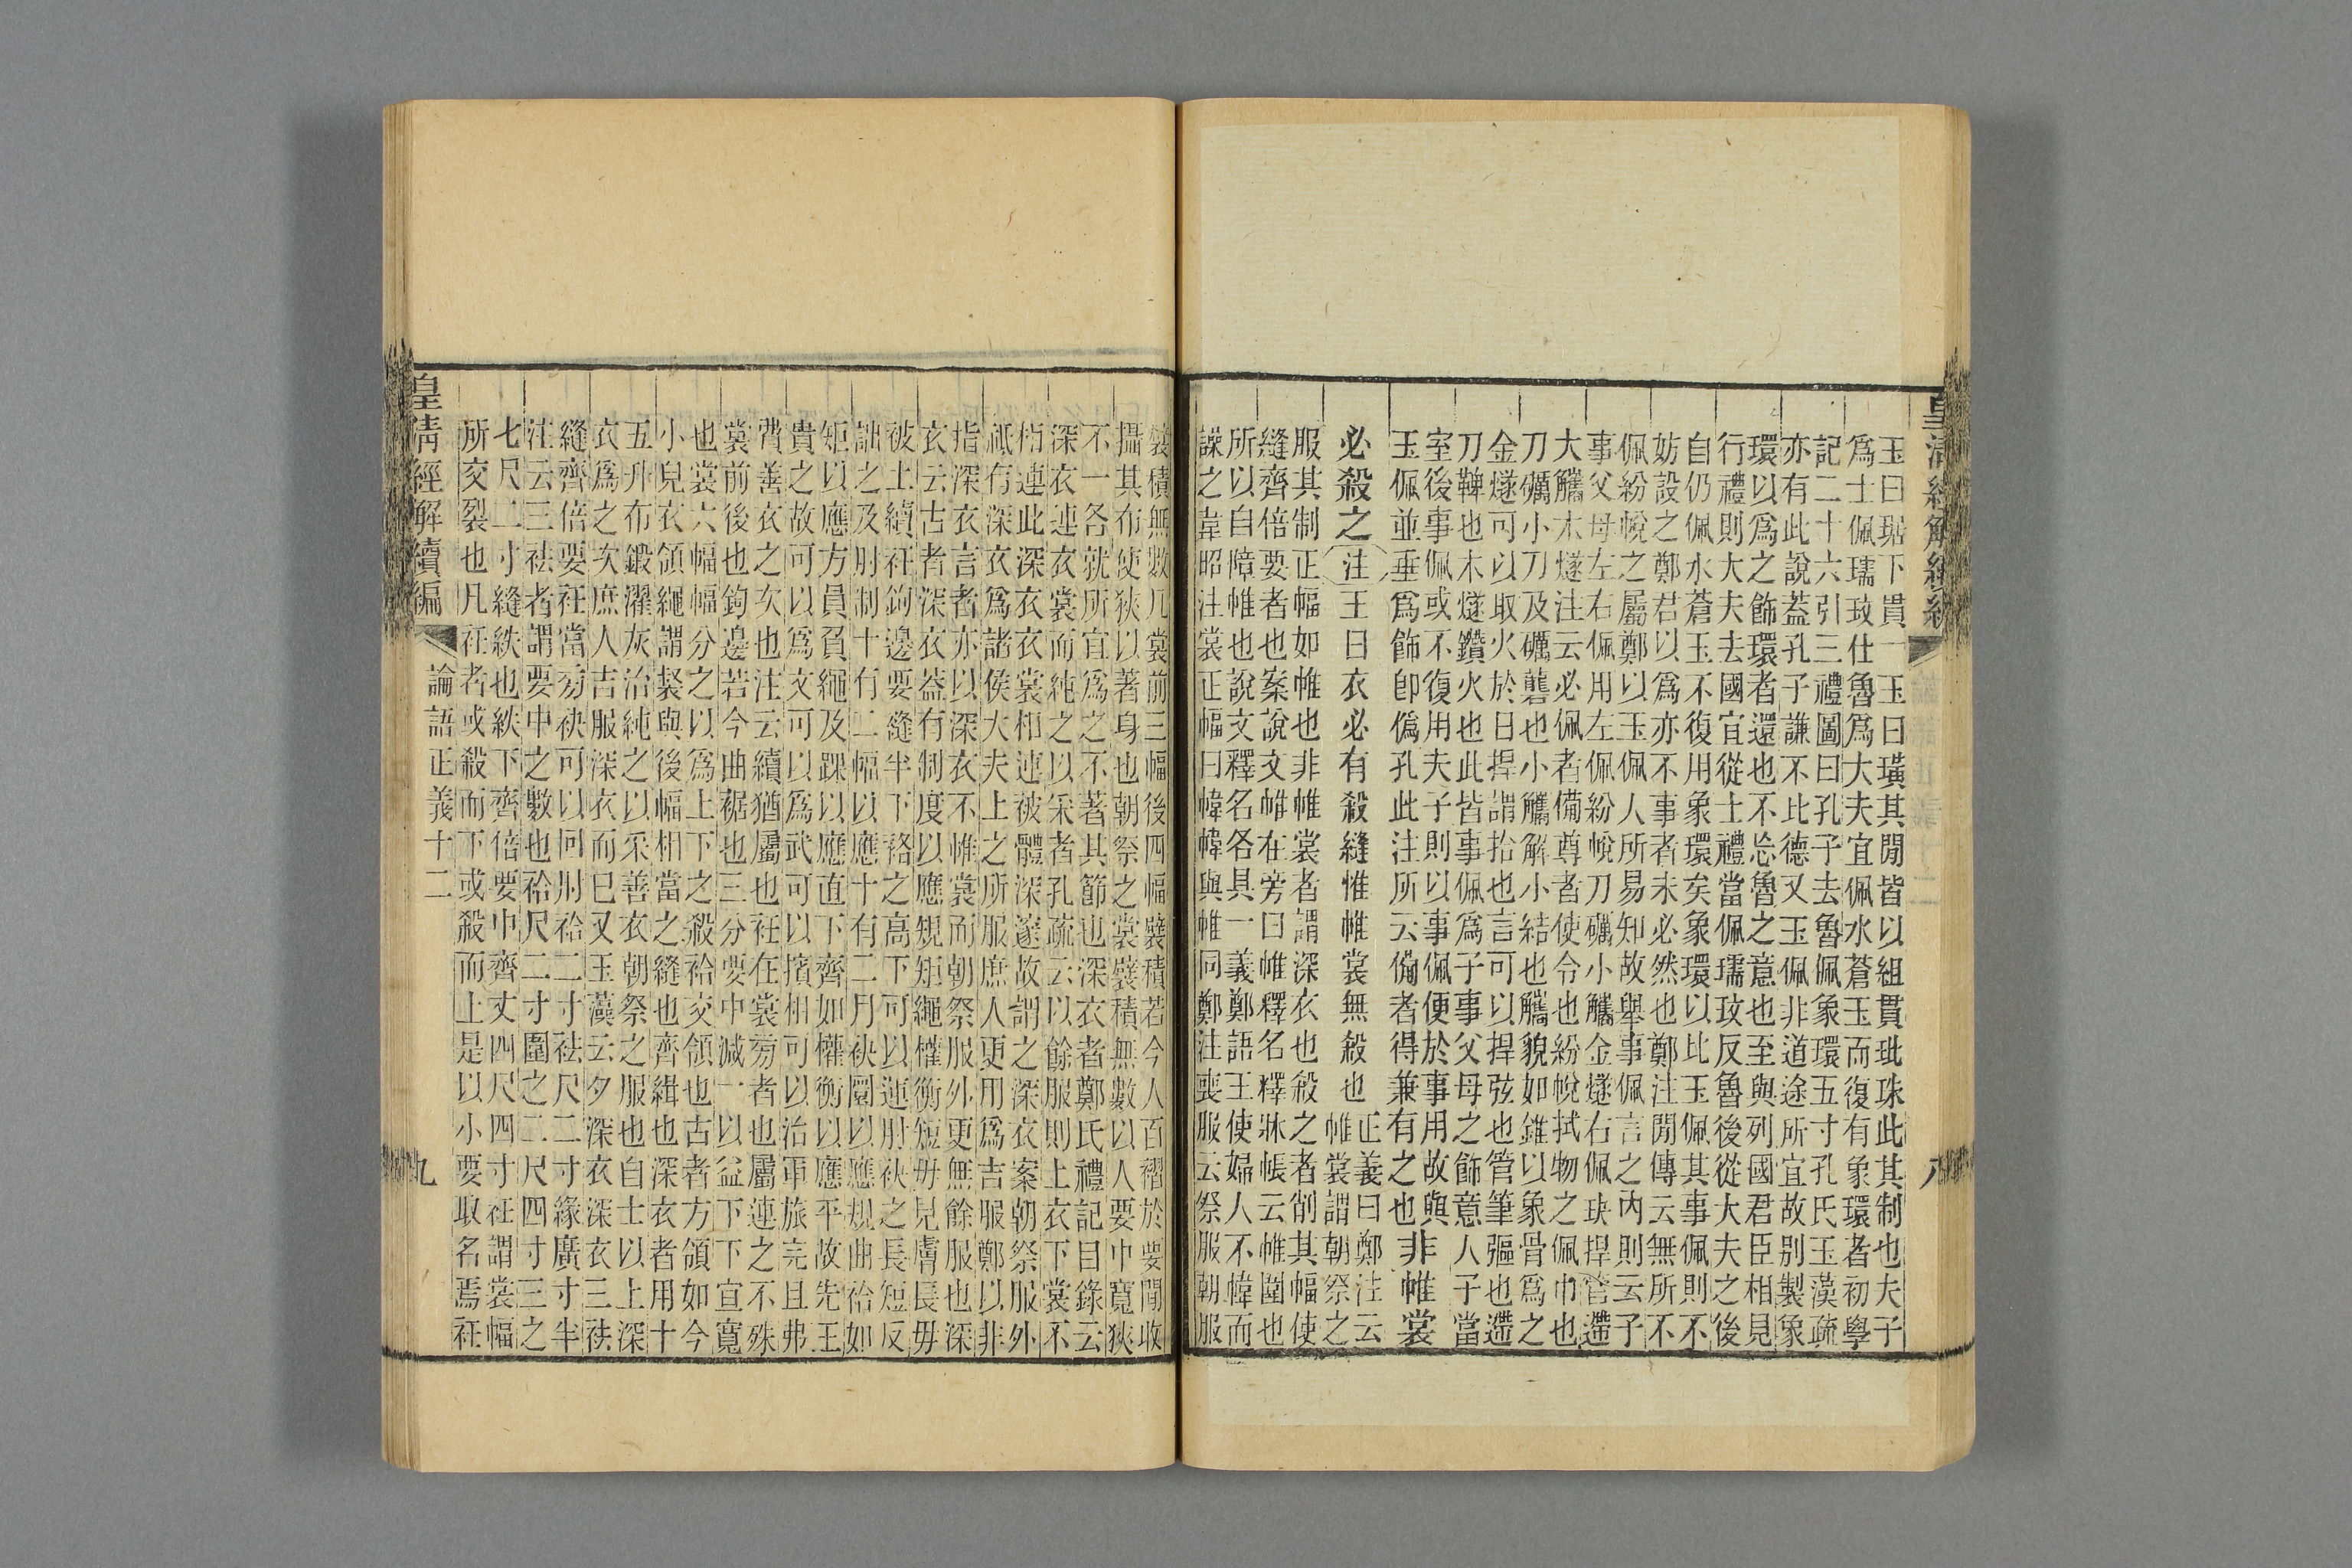 皇清經解續編
八
玉曰琚下貫一玉曰璜其閒皆以組貫玭珠此其制也夫子
爲士佩瓀玟仕魯爲大夫宜佩水蒼玉而復有象環者初學
記二十六引三禮圖曰孔子去魯佩象環五寸孔氏玉漢疏
亦有此說葢孔子謙不比德又玉佩非道途所宜故別製象
環以爲之飾環者還也不忘魯之意也至與列國君臣相見
行禮則大夫去國宜從士禮當佩瓀玟反魯後從大夫之後
自仍佩水蒼玉不復用象環矣象環以比玉佩其事佩則不
妨設之鄭君以爲亦不事者未必然也鄭注閒傳云無所不
佩紛帨之屬鄭以玉佩人所易知故舉事佩言之內則云子
事父母左右佩用左佩紛帨刀礪小觿金燧右佩玦捍管遰
大觿木燧注云必佩者備尊者使令也紛帨拭物之佩巾也
刀礪小刀及礪礱也小觿解小結也觿貌如錐以象骨爲之
金燧可以取火於日捍謂拾也言可以捍弦也管筆彄也遰
刀鞞也木燧鑽火也此皆事佩爲子事父母之飾意人子當
室後事佩或不復用夫子則以事佩便於事用故與
玉佩並垂爲飾卽僞孔此注所云備者得兼有之也
非帷裳
必殺之注王曰衣必有殺縫惟帷裳無殺也
正義曰鄭注云
帷裳謂朝祭之
服其制正幅如帷也非帷裳者謂深衣也殺之者削其幅使
縫齊倍要者也案說文帷在旁曰帷釋名釋牀帳云帷圍也
所以自障帷也說文釋名各具一義鄭語王使婦人不幃而
譟之韋昭注裳正幅曰幃幃與帷同鄭注喪服云祭服朝服
襞積無數凡裳前三幅後四幅襞積若今人百褶於要閒收
攝其布使狹以著身也朝祭之裳襞積無數以人要中寬狹
不一各就所宜爲之不著其節也深衣者鄭氏禮記目錄云
深衣連衣裳而純之以采者孔疏云以餘服則上衣下裳不
相連此深衣衣裳相連被體深邃故謂之深衣案朝祭服外
祗有深衣爲諸侯大夫上之所服庶人更用爲吉服鄭以非
指深衣言者亦以深衣不帷裳而朝祭服外更無餘服也深
衣云古者深衣葢有制度以應規矩繩權衡短毋見膚長毋
被土續衽鉤邊要縫半下袼之高下可以運肘袂之長短反
詘之及肘制十有二幅以應十有二月袂圜以應規曲袷如
矩以應方員負繩及踝以應直下齊如權衡以應平故先王
貴之故可以爲文可以爲武可以擯相可以治軍旅完且弗
費善衣之次也注云續猶屬也衽在裳旁者也屬連之不殊
裳前後也鉤邊若今曲裾也三分要中減一以益下下宜寬
也裳六幅幅分之以爲上下之殺袷交領也古者方領如今
小兒衣領繩謂裻與後幅相當之縫也齊緝也深衣者用十
五升布鍛濯灰治純之以采善衣朝祭之服也自士以上深
衣爲之次庶人吉服深衣而已又玉藻云夕深衣深衣三袪
縫齊倍要衽當旁袂可以回肘袷二寸袪尺二寸緣廣寸半
注云三袪者謂要中之數也袷尺二寸圍之二尺四寸三之
七尺二寸縫紩也紩下齊倍要中齊丈四尺四寸衽謂裳幅
所交裂也凡衽者或殺而下或殺而上是以小要取名焉衽
皇清經解續編
論語正義十二
九